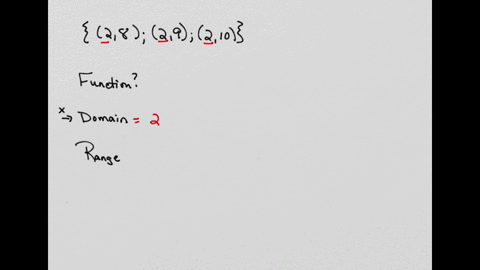 {(2,8);(2,9);(2,10)}
Function?
x → Domain = 2
Range